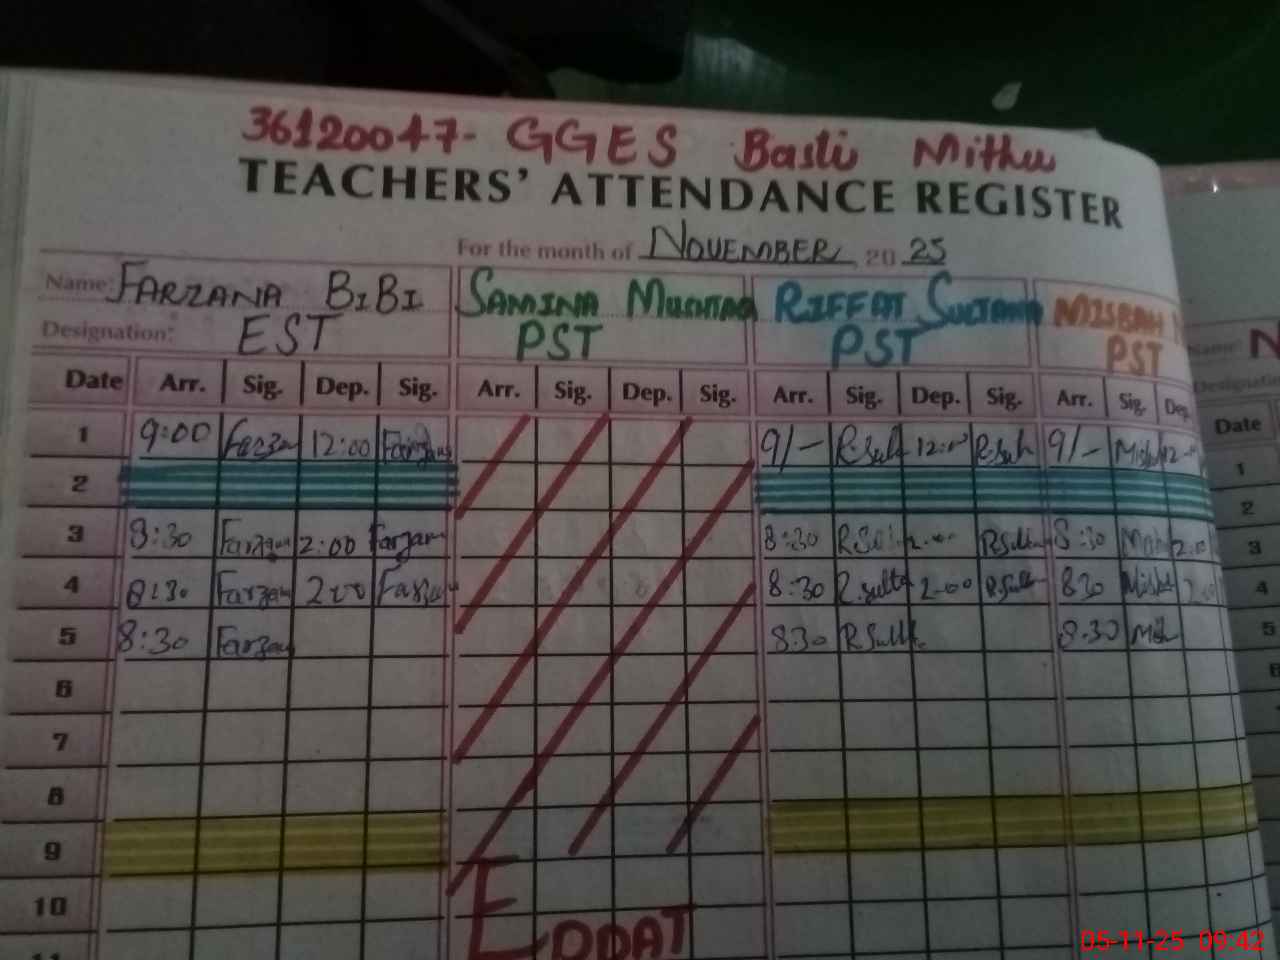 36120047- GGES Basti Mithu
TEACHERS' ATTENDANCE REGISTER
For the month of NOVEMBER 2025
Name: FARZANA BIBI SAMINA MUMTAQ RIFFAT SULTANA MISBAH Name: N
Designation: EST PST PST PST Designatio
Date Arr. Sig. Dep. Sig. Arr. Sig. Dep. Sig. Arr. Sig. Dep. Sig. Arr. Sig. Dep. Date
1 9:00 Farzan 12:00 Farzan 9/- R.Sult 12:00 R.Sult 9/- Misb 12-00 1
2 2
3 8:30 Farzan 2:00 Farzan 8:30 R.Sult 2:00 R.Sult 8:30 2:00 3
4 8:30 Farzan 2:00 Farzan 8:30 R.Sult 2-00 R.Sult 830 Misb 4
5 8:30 Farzan 830 R.Sult 8.30 5
6 6
7
8
9
10
11
EDDAT
05-11-25 09:42